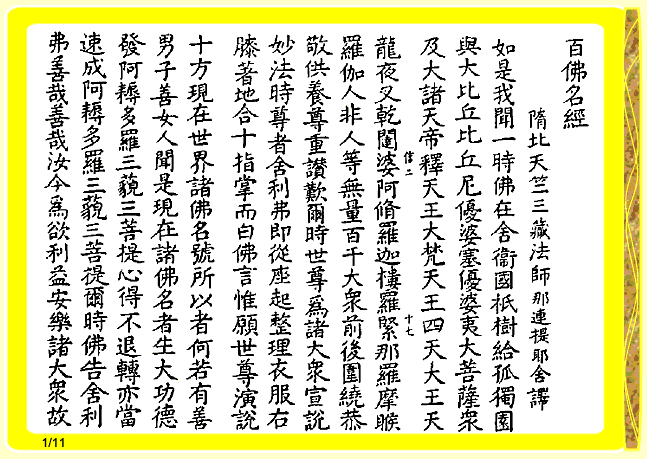 百佛名經
隋北天竺三藏法師那連提耶舍譯
如是我聞一時佛在舍衞國祇樹給孤獨園
與大比丘比丘尼優婆塞優婆夷大菩薩衆
及大諸天帝釋天王大梵天王四天大王天
龍夜叉乾闥婆阿脩羅迦樓羅緊那羅摩睺
信二
十七
羅伽人非人等無量百千大衆前後圍繞恭
敬供養尊重讃歎爾時世尊爲諸大衆宣説
妙法時尊者舍利弗即從座起整理衣服右
膝著地合十指掌而白佛言惟願世尊演説
十方現在世界諸佛名號所以者何若有善
男子善女人聞是現在諸佛名者生大功德
發阿耨多羅三藐三菩提心得不退轉亦當
速成阿耨多羅三藐三菩提爾時佛告舍利
弗善哉善哉汝今爲欲利益安樂諸大衆故
1/11